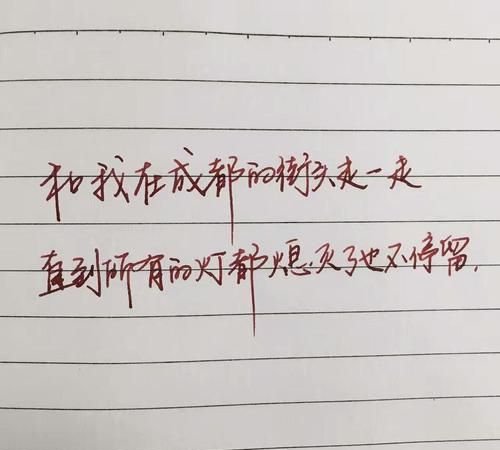 和我在成都的街头走一走
直到所有的灯都熄灭了也不停留.